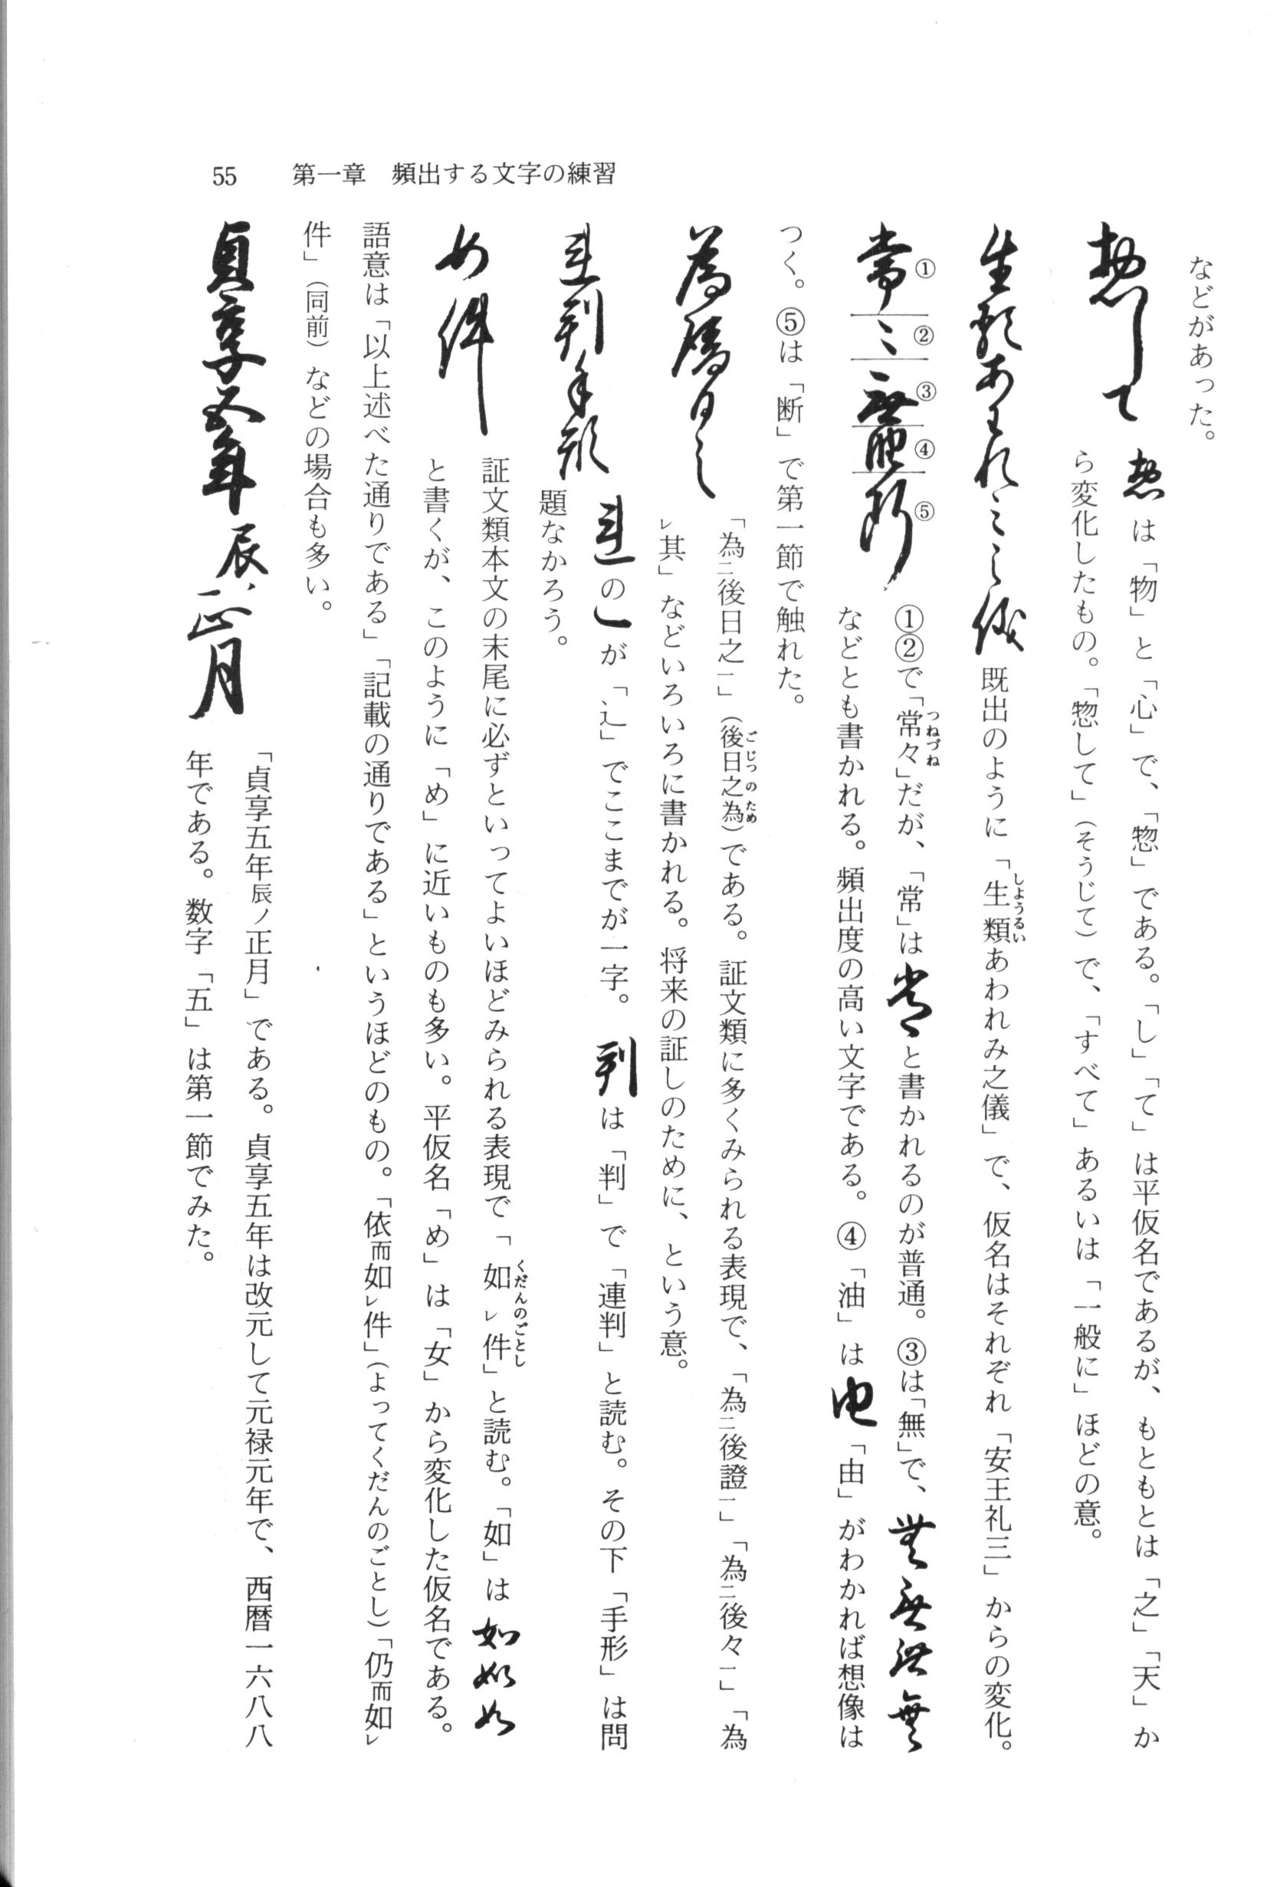 55　第一章　頻出する文字の練習
などがあった。
惣して　惣は「物」と「心」で、「惣」である。「し」「て」は平仮名であるが、もともとは「之」「天」か
ら変化したもの。「惣して」（そうじて）で、「すべて」あるいは「一般に」ほどの意。
生類あわれミ之儀　既出のように「生類あわれみ之儀」で、仮名はそれぞれ「安王礼三」からの変化。
しようるい
常々無油断　①②で「常々」だが、「常」は常と書かれるのが普通。③は「無」で、無無無無
① ② ③ ④ ⑤
つねづね
などとも書かれる。頻出度の高い文字である。④「油」は由「由」がわかれば想像は
つく。⑤は「断」で第一節で触れた。
為後日之　「為ニ後日之一」（後日之為）である。証文類に多くみられる表現で、「為ニ後證一」「為ニ後々一」「為
ごじつのため
レ其」などいろいろに書かれる。将来の証しのために、という意。
連判手形　連の㇏が「辶」でここまでが一字。判は「判」で「連判」と読む。その下「手形」は問
題なかろう。
如件　証文類本文の末尾に必ずといってよいほどみられる表現で「如レ件」と読む。「如」は如如如
くだんのごとし
と書くが、このように「め」に近いものも多い。平仮名「め」は「女」から変化した仮名である。
語意は「以上述べた通りである」「記載の通りである」というほどのもの。「依而如レ件」（よってくだんのごとし）「仍而如レ
件」（同前）などの場合も多い。
貞享五年辰ノ正月　「貞享五年辰ノ正月」である。貞享五年は改元して元禄元年で、西暦一六八八
年である。数字「五」は第一節でみた。